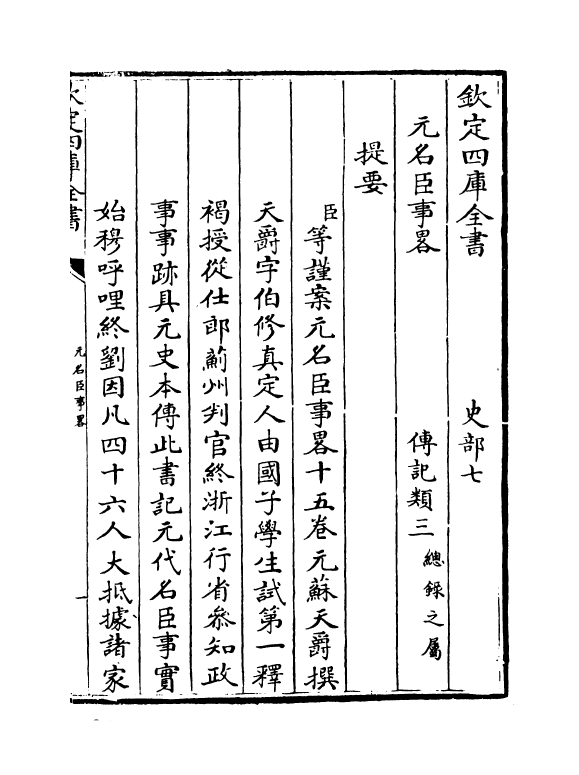 欽定四庫全書　史部七
元名臣事畧　傳記類三總錄之屬
提要
臣等謹案元名臣事畧十五卷元蘇天爵撰
天爵字伯修真定人由國子學生試第一釋
褐授從仕郎薊州判官終浙江行省叅知政
事事跡具元史本傳此書記元代名臣事實
始穆呼哩終劉因凡四十六人大抵據諸家
欽定四庫全書
元名臣事畧
一